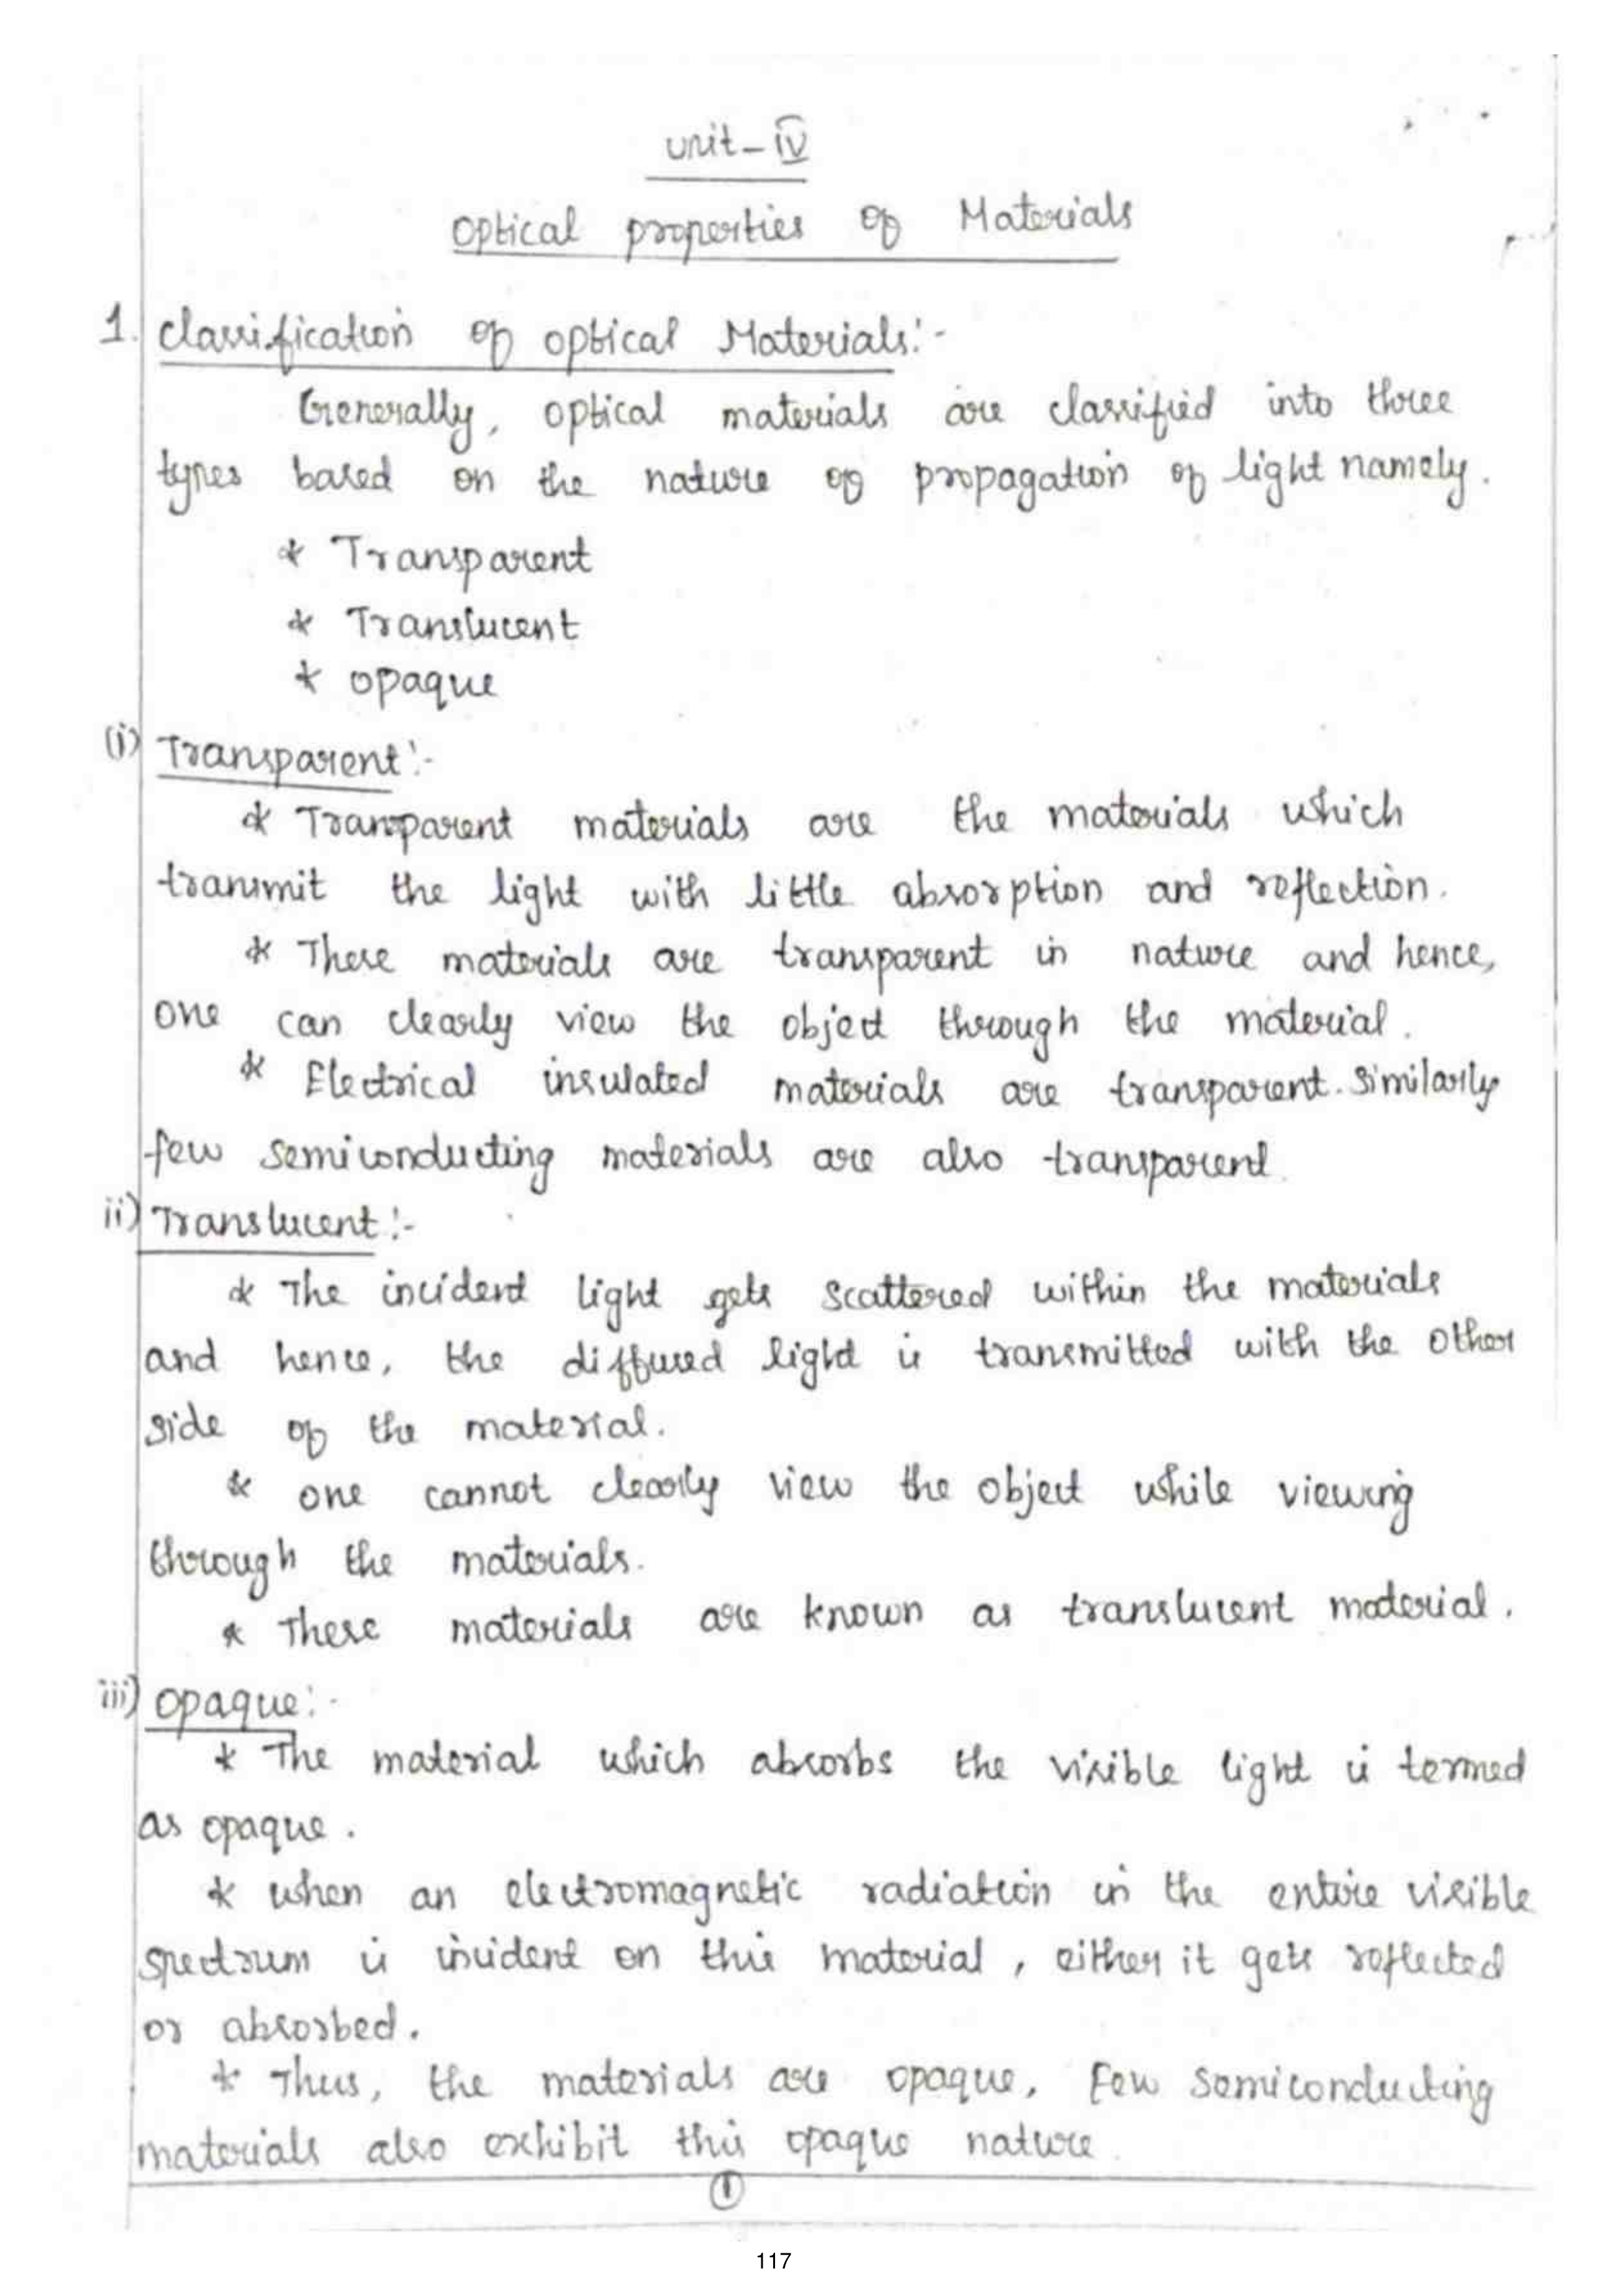 unit-IV
Optical properties of Materials
1. Classification of optical Materials:-
Generally, optical materials are classified into three
types based on the nature of propagation of light namely.
* Transparent
* Translucent
* opaque
(i) Transparent:-
* Transparent materials are the materials which
transmit the light with little absorption and reflection.
* These materials are transparent in nature and hence,
one can clearly view the object through the material.
* Electrical insulated materials are transparent. Similarly
few semiconducting materials are also transparent.
ii) Translucent:-
* The incident light gets scattered within the materials
and hence, the diffused light is transmitted with the other
side of the material.
* one cannot clearly view the object while viewing
through the materials.
* These materials are known as translucent material.
iii) opaque:-
* The material which absorbs the visible light is termed
as opaque.
* when an electromagnetic radiation in the entire visible
spectrum is incident on this material, either it gets reflected
or absorbed.
* Thus, the materials are opaque, Few semiconducting
materials also exhibit this opaque nature.
1
117